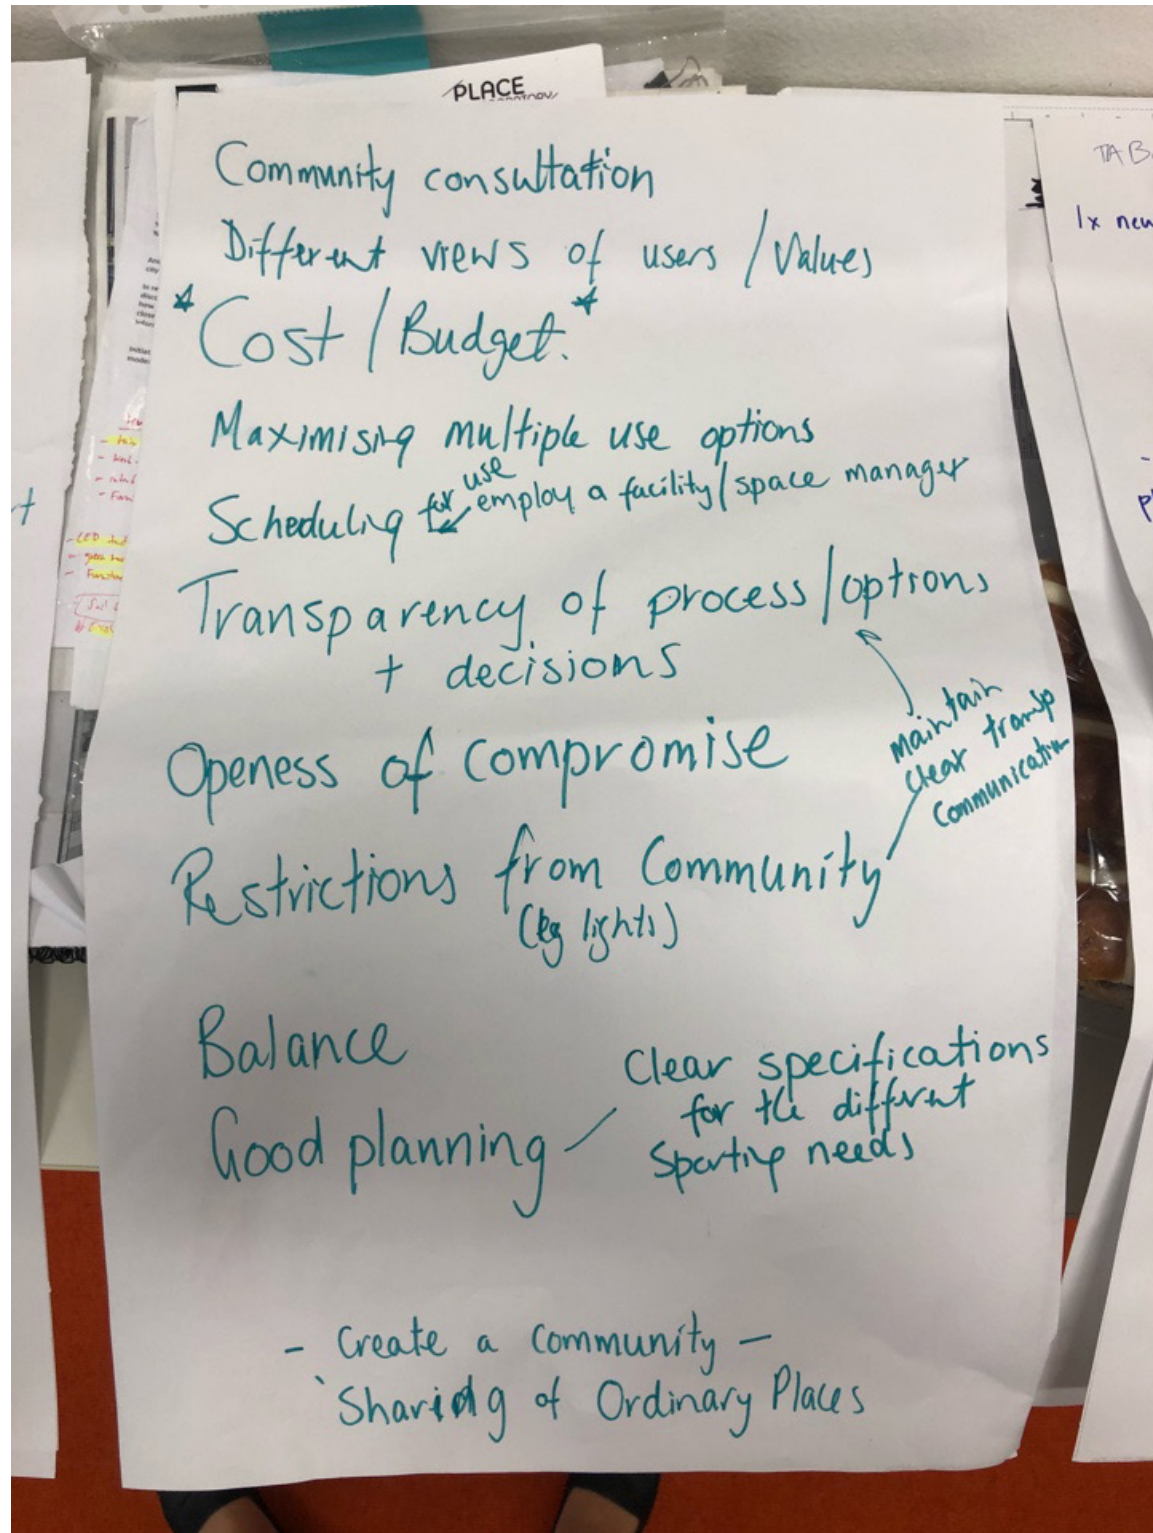 PLACE
Community consultation
Different views of users / Values
* Cost / Budget. *
Maximising multiple use options
Scheduling for use employ a facility/space manager
Transparency of process/options
+ decisions
maintain
clear transp
communication
Openess of compromise
Restrictions from Community
(eg lights)
Balance
Good planning
Clear specifications
for the different
Sporting needs
- Create a community -
Sharing of Ordinary Places
1x new